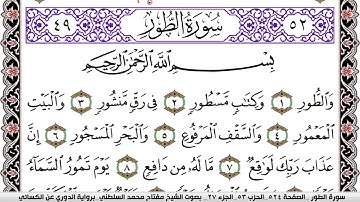 ٥٢ سُورَةُ الطُّورِ ٤٩
بِسْمِ اللَّهِ الرَّحْمَٰنِ الرَّحِيمِ
وَالطُّورِ ١ وَكِتَابٍ مَّسْطُورٍ ٢ فِي رَقٍّ مَّنشُورٍ ٣ وَالْبَيْتِ
الْمَعْمُورِ ٤ وَالسَّقْفِ الْمَرْفُوعِ ٥ وَالْبَحْرِ الْمَسْجُورِ ٦ إِنَّ
عَذَابَ رَبِّكَ لَوَاقِعٌ ٧ مَّا لَهُ مِن دَافِعٍ ٨ يَوْمَ تَمُورُ السَّمَاءُ
سورة الطور . الصفحة ٥٢٤ . الحزب ٥٣ . الجزء ٢٧ . بصوت الشيخ مفتاح محمد السلطني . برواية الدوري عن الكسائي